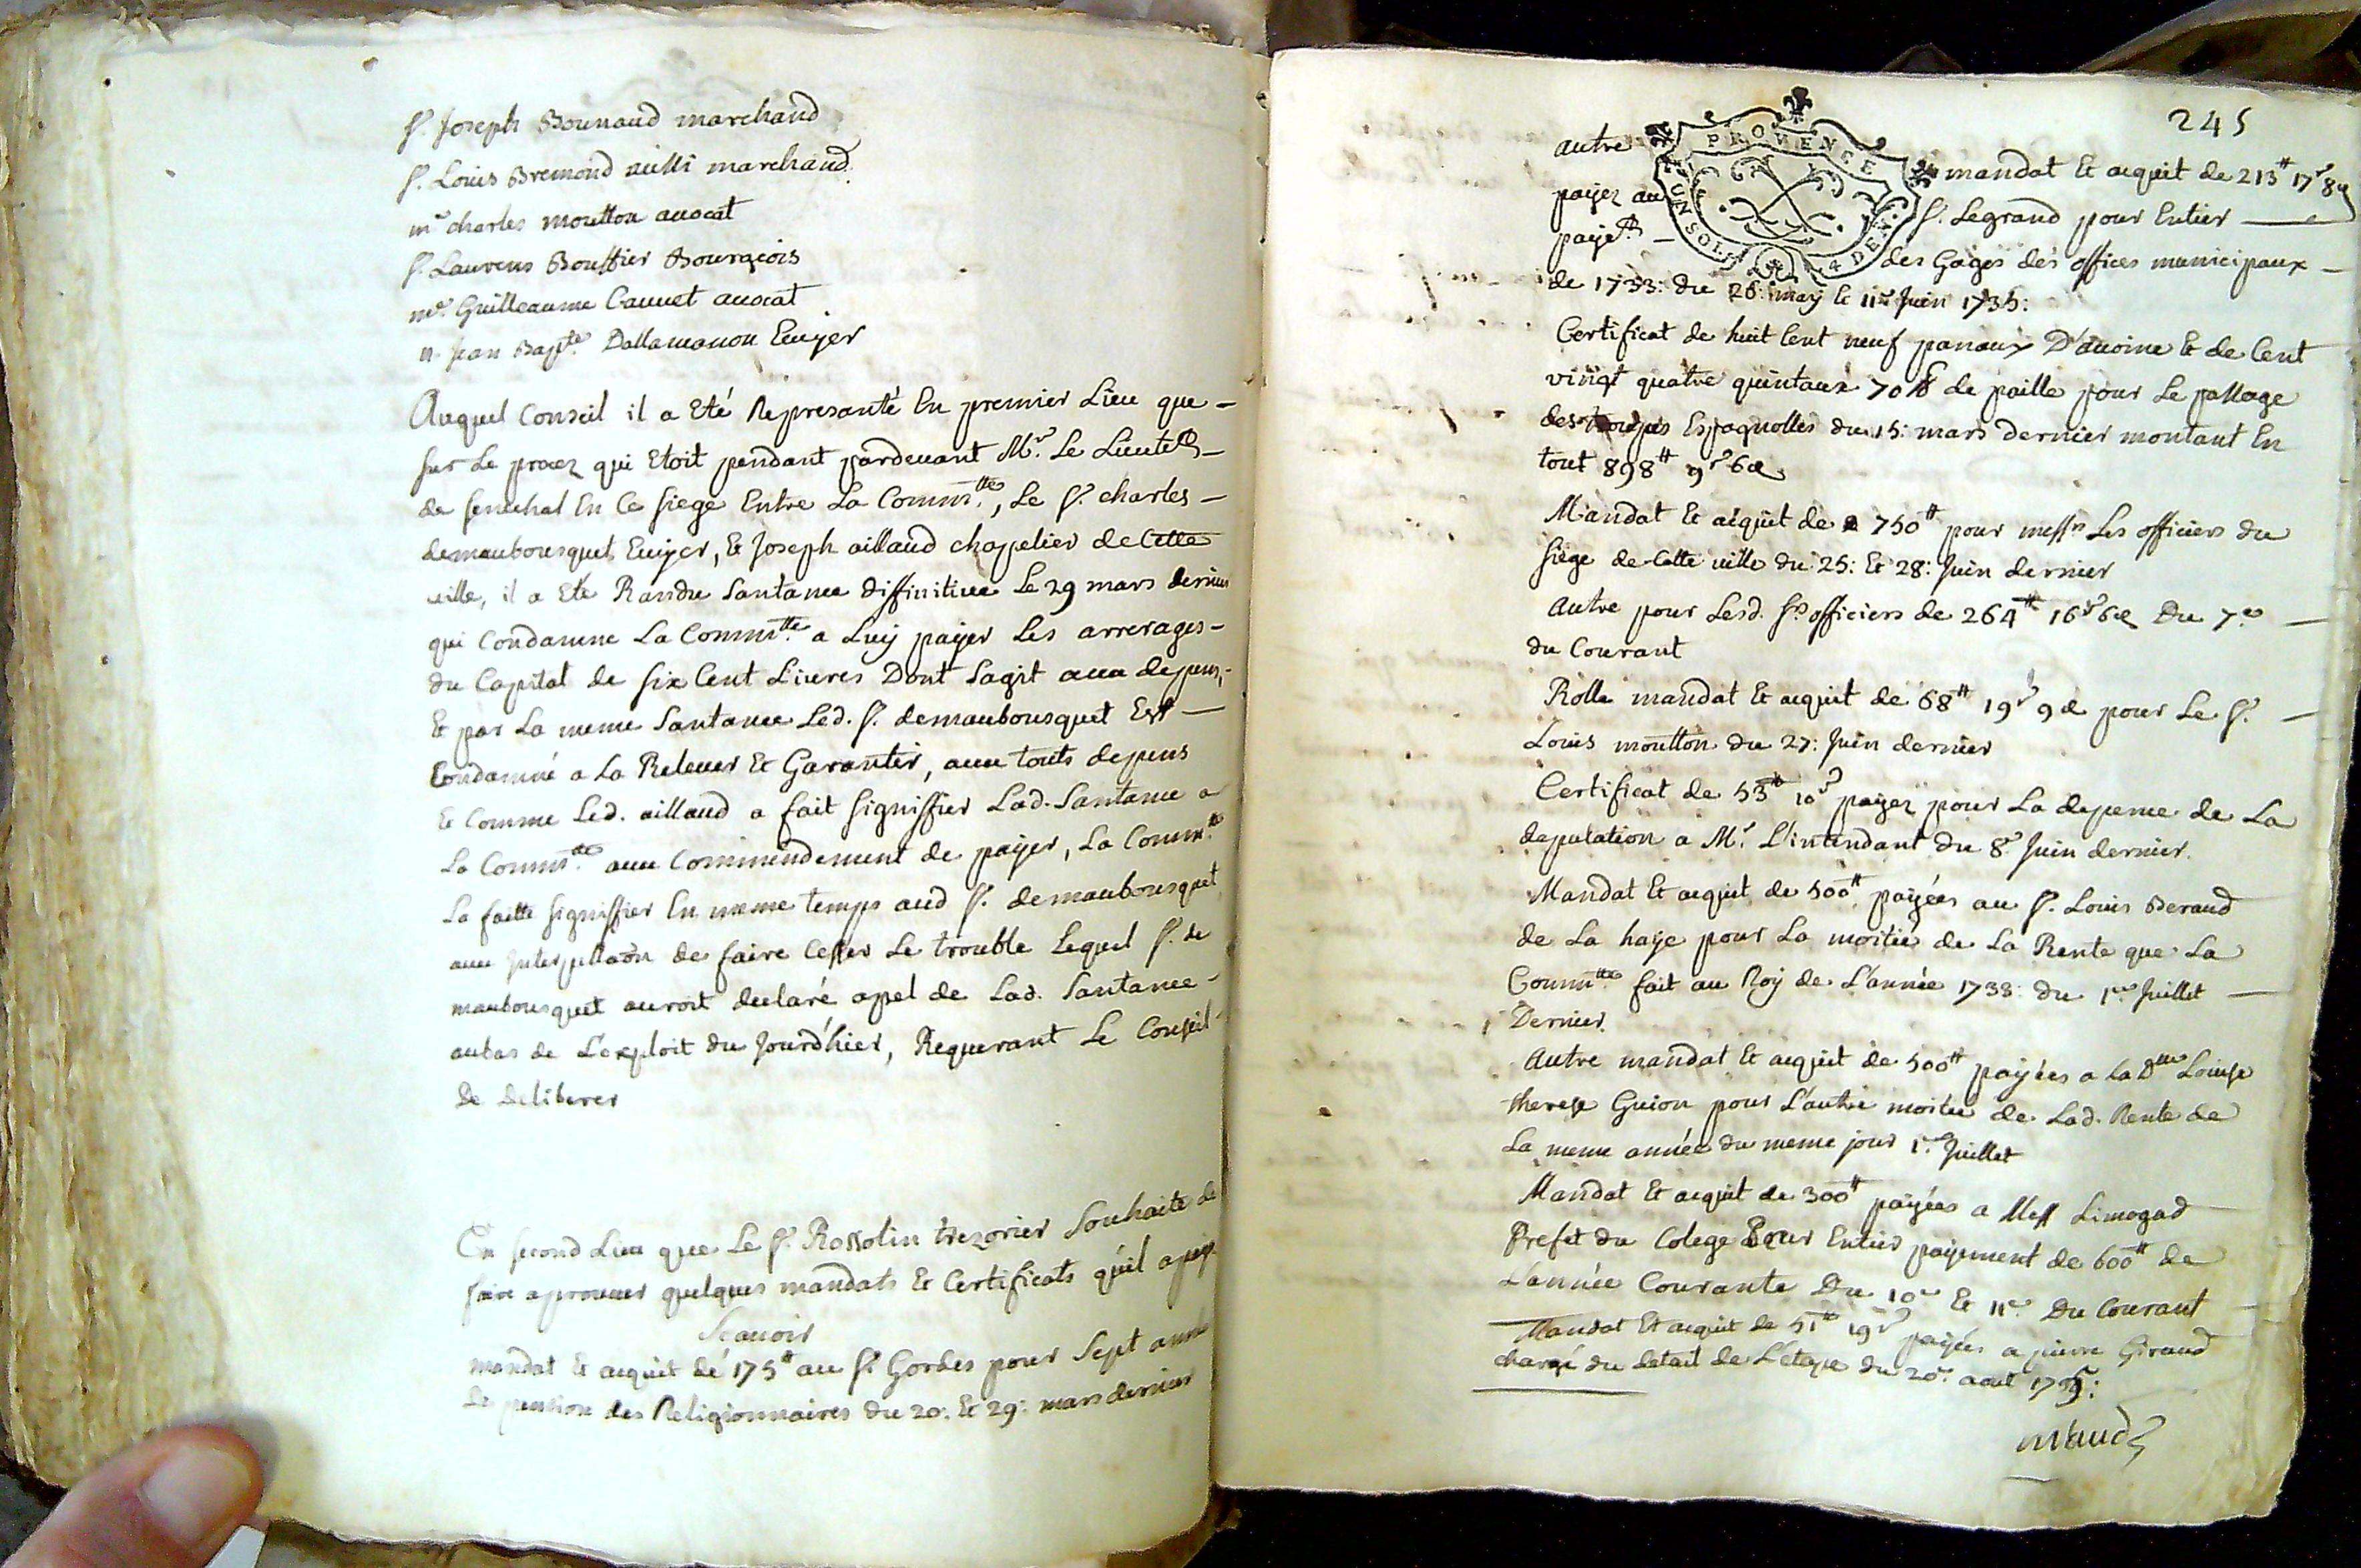 Sr. Joseph Bounaud marchand
Sr. Louis Bremond aussi marchand
me charles moutton avocat
Sr. Laurens Bouffier Bourgeois
me. Guilleaume Cauvet avocat
n. Jean Bapte. Dallamanon Ecuyer
Auquel Conseil il a Eté Represanté En premier Lieu que
sur Le procez qui Etoit pendant pardevant Mr. Le Lieutent
de senechal En Ce siege Entre La Commtte, Le Sr. charles
demaubousquet Ecuyer, Et Joseph aillaud chapelier de Cette
ville, il a Eté Randu Santance diffinitive Le 29 mars dernier
qui Condamne La Commtte. a Luy payer Les arrerages
du Capital de six Cent Livres Dont Sagit avec depens,
Et par La meme Santance Led. Sr. demaubousquet Est
Condamné a La Relever Et Garantir, avec touts depens
Et Comme Led. aillaud a fait signiffier Lad. Santance a
La Commtte. avec Commendement de payer, La Commtte.
La faitte signiffier En meme temps aud Sr. demaubousquet
avec Interpellaon de faire Cesser Le trouble Lequel Sr. de
maubousquet auroit declaré apel de Lad. Santance
aubas de L'exploit du Jourd'hier, Requerant Le Conseil
De deliberer
En second Lieu que Le Sr. Rossolin trezorier Souhaite de
faire aprouver quelques mandats Et Certificats qu'il a payé
Scavoir
mandat Et acquit de 175tt au Sr. Gordes pour Sept année
de pension des Religionnaires du 20. Et 29: mars dernier
245
PROVENCE
UN SOL 4 DEN.
autre mandat Et acquit de 213tt 17s 8d
payez au Sr. Legrand pour Entier
payet. des Gages des offices municipaux
de 1733: du 26: may Et 11e Juin 1735:
Certificat de huit Cent neuf panaux D'avoine Et de Cent
vingt quatre quintaux 70 lb de paille pour Le passage
des troupes Espagnolles du 15: mars dernier montant En
tout 898tt 9s 6d
Mandat Et acquit de 750tt pour messrs Les officiers du
siege de Cette ville du 25: Et 28: Juin dernier
Autre pour Lesd. Srs officiers de 264tt 16s 6d Du 7e.
du Courant
Rolle mandat Et acquit de 68tt 19s 9d pour Le Sr.
Louis moutton du 27: Juin dernier
Certificat de 53tt 10s payez pour La depence de La
deputation a Mr. L'intendant du 8e. Juin dernier.
Mandat Et acquit de 500tt payées au Sr. Louis Beraud
de La haye pour La moitié de La Rente que La
Commtte. fait au Roy de L'année 1733: du 1er Juillet
Dernier.
Autre mandat Et acquit de 500tt payées a La Dlle Louise
therese Guion pour L'autre moitié de Lad. Rente de
La meme année du meme jour 1er. Juillet
Mandat Et acquit de 300tt payées a Mess Limogad
Prefet du Colege Pour Entier payement de 600tt de
L'année Courante Du 10e Et 11e. Du Courant
Mandat Et acquit de 51tt 19s payées a pierre Giraud
chargé du detail de L'etape du 20e. aout 1735: